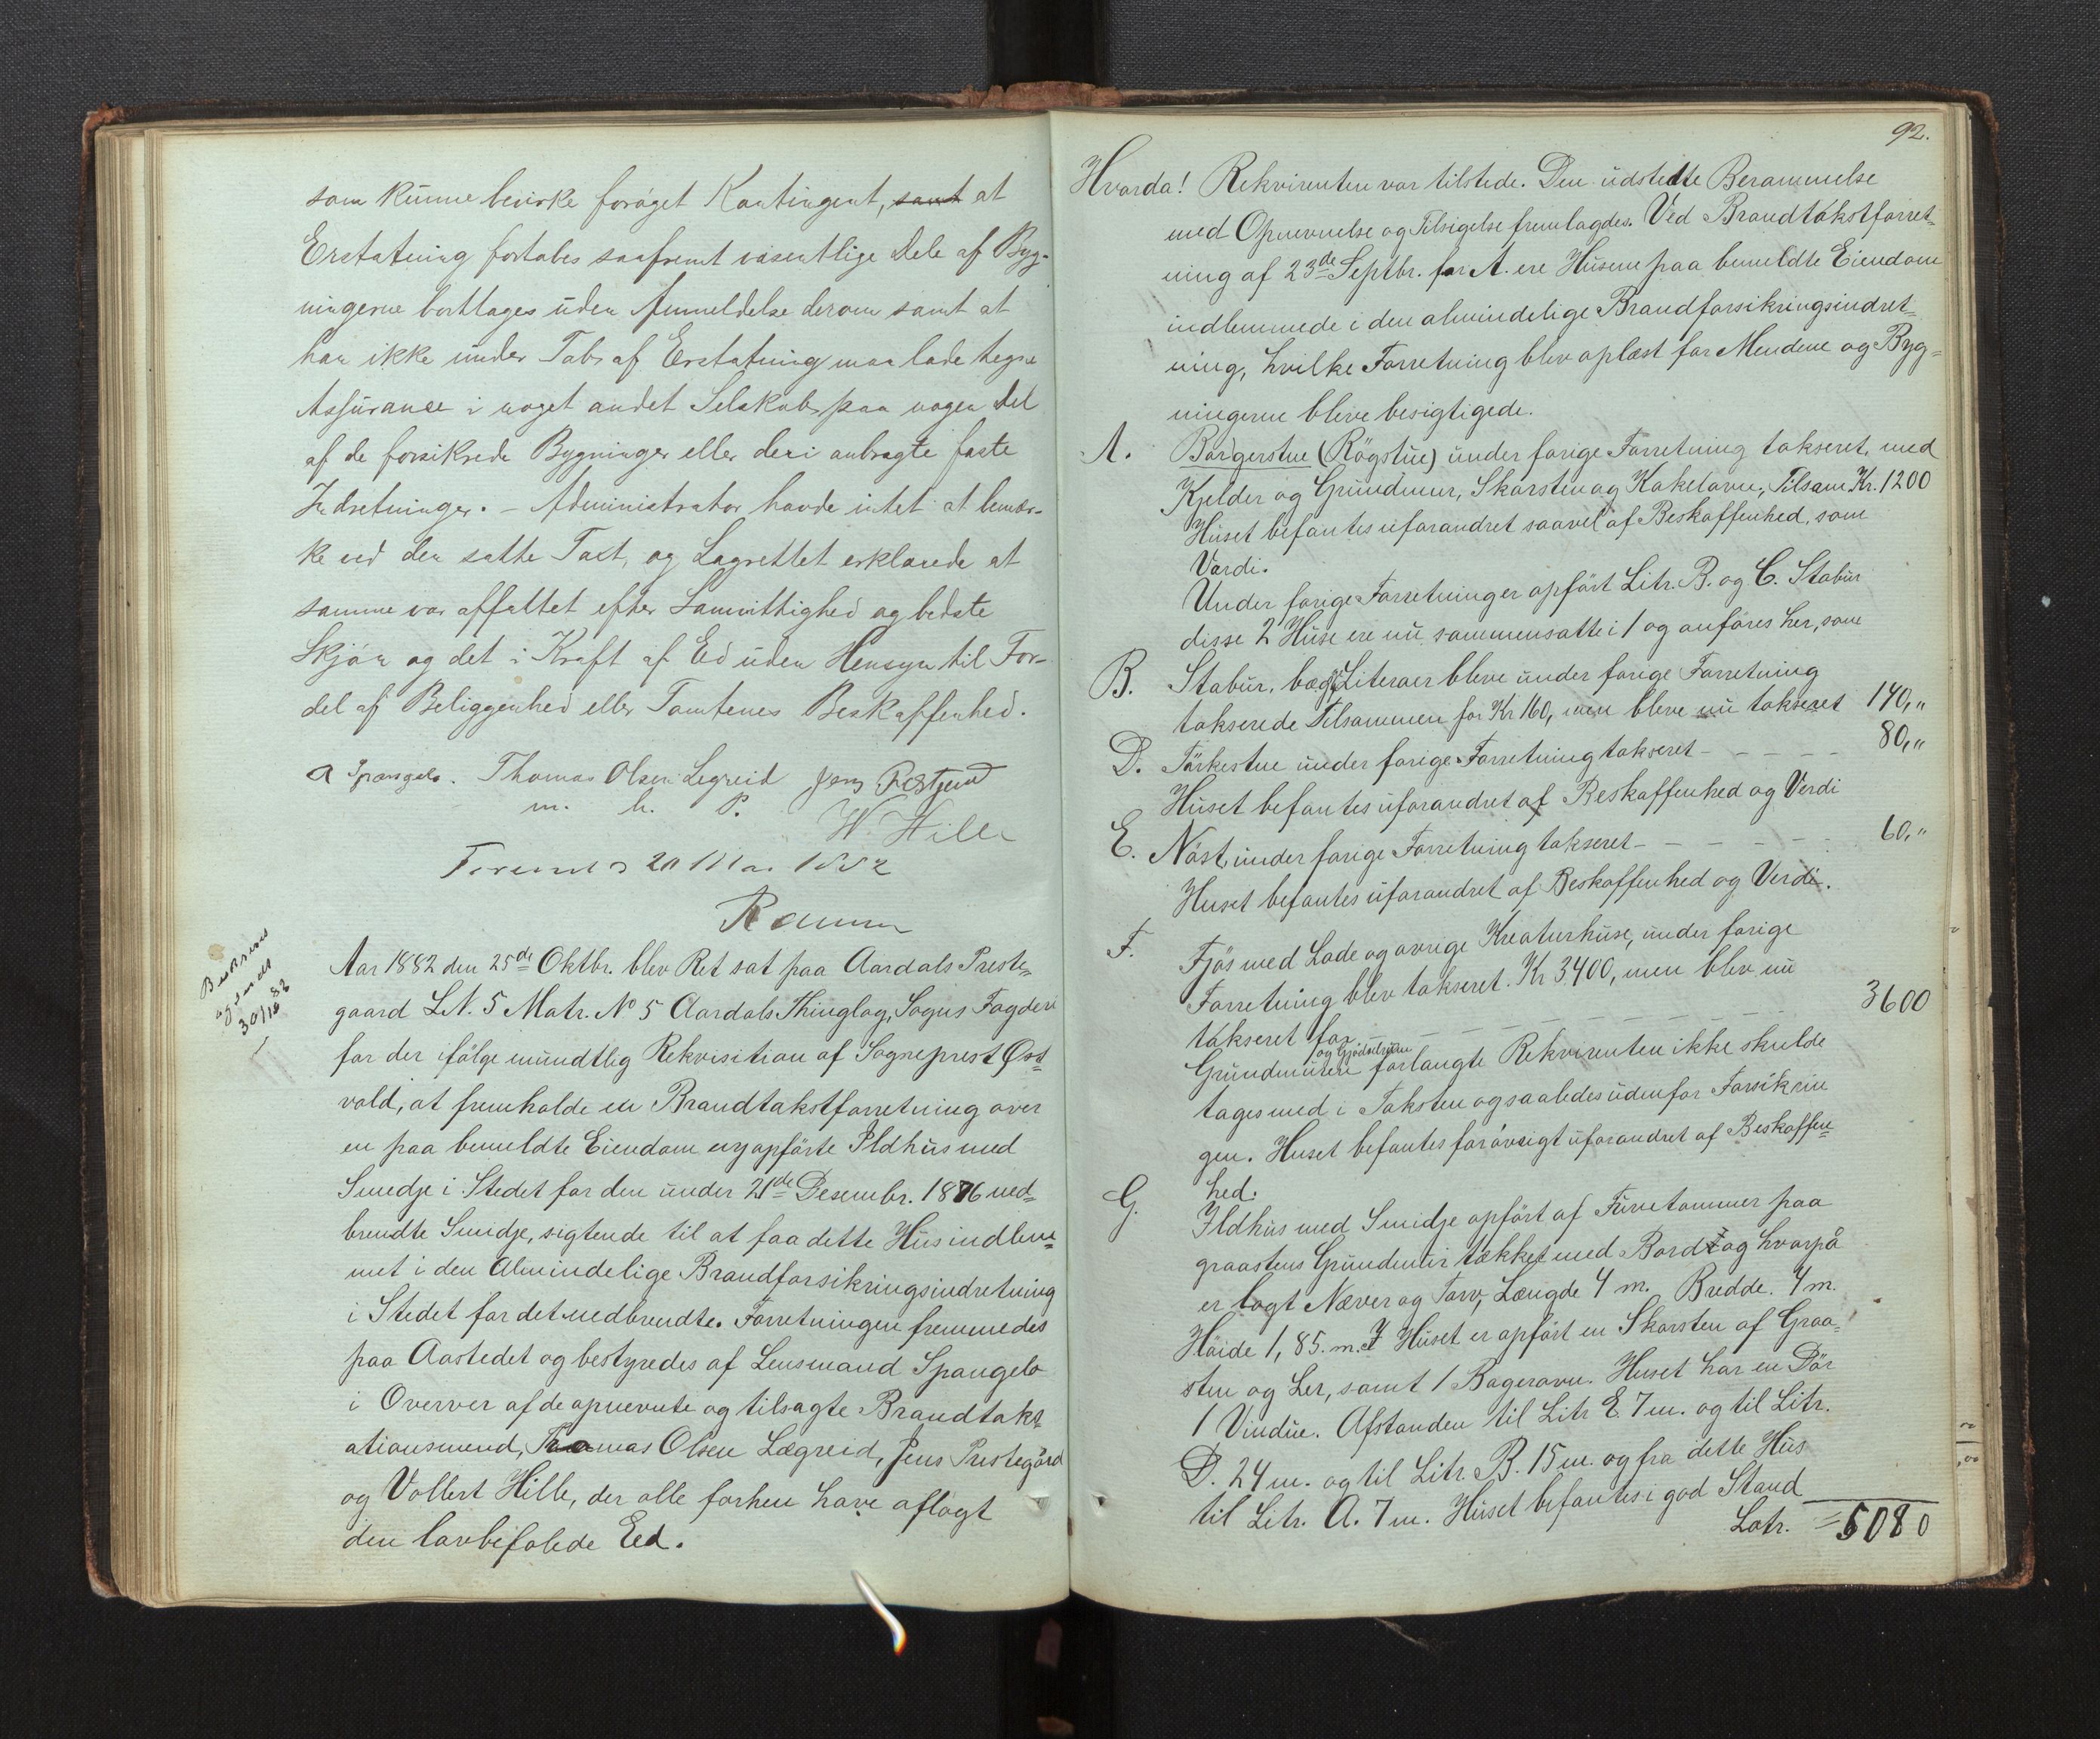 som kunne bevirke forøget Kontingent, samt at
Erstatning fortabes saafremt væsentlige Dele af Byg-
ningerne borttages uden Anmeldelse derom samt at
han ikke under Tab af Erstatning maa lade tegne
Assurance i noget andet Selskab paa nogen Del
af de forsikrede Bygninger eller deri anbragte faste
Indretninger. - Administrator havde intet at bemær-
ke ved den satte Taxt, og Lagrettet erklærede at
samme var affattet efter Samvittighed og bedste
Skjøn og det i Kraft af Ed uden Hensyn til For-
del af Beliggenhed eller Tomtenes Beskaffenhed.
A Spangelo. Thomas Olsen Legreid Jens
m. h. P.
W Hille
1882
Beskreven
30/10 82
Aar 1882 den 25de Oktbr. blev Ret sat paa Aardals Preste-
gaard L.N. 5 Matr. No 5 Aardals Thinglag, Sogns Fogderi
for der ifölge mundtlig Rekvisition af Sogneprest Øst-
vold, at fremholde en Brandtakstforretning over
en paa bemeldte Eiendom nyopförte Ildhus med
Smedje i Stedet for den under 21de Desembr. 1876 ned-
brendte Smidje, sigtende til at faa dette Hus indlem-
met i den Almindelige Brandforsikringsindretning
i Stedet for det nedbrendte. Forretningen fremmedes
paa Aastedet og bestyredes af Lensmand Spangelo
i Overver af de opnevnte og tilsagte Brandtaks-
ationsmend, Thomas Olsen Lægreid, Jens Prestegård
og Vollert Hille, der alle forhen have aflagt
den lovbefalede Eed.
92.
Hvorda! Rekvirenten var tilstede. Den udstedte Berammelse
med Opnevnelse og Tilsigelse fremlagdes. Ved Brandtakstforret-
ning af 23de Septbr. for A. ere Husene paa bemeldte Eiendom
indlemmede i den almindelige Brandforsikringsindret-
ning, hvilke Forretning blev oplæst for Mendene og Byg-
ningerne bleve besigtigede.
A. Borgerstue (Rögstue) under forige Forretning takseret, med
Kjelder og Grundmur, Skorsten og Kakelovn, Tilsam. Kr. 1200
Huset befantes uforandret saavel af Beskaffenhed, som
Værdi.
Under forige Forretninger opfört Litr. B. og C. Stabur
disse 2 Huse ere nu sammensatte i 1 og anföres her, som
B. Stabur, begge Literaer bleve under forige Forretning
takserede Tilsammen for Kr 160, men bleve nu takseret 140,"
D. Törkestue under forige Forretning takseret - - - - - 80,"
Huset befantes uforandret af Beskaffenhed og Verdi
E. Nöst, under forige Forretning takseret - - - - - 60,"
Huset befantes uforandret af Beskaffenhed og Verdi.
F. Fjös med Lade og övrige Kreaturhuse, under forige
Forretning blev takseret. Kr 3400, men blev nu
takseret for - - - - - - - - - - 3600
og Gjödselrum
Grundmuren forlangte Rekvirenten ikke skulde
tages med i Taksten og saaledes udenfor Forsikrin
gen. Huset befantes forövrigt uforandret af Beskaffen-
hed.
G. Ildhus med Smidje opfört af Furutömmer paa
graastens Grundmur tækket med Bord og hvorpå
er lagt Næver og Torv, Længde 4 m. Bredde. 4 m.
Höide 1,85. m. I Huset er opfört en Skorsten af Graa-
sten og Ler, samt 1 Bagerovn. Huset har en Dör
1 Vindue. Afstanden til Litr E. 7 m. og til Litr.
D. 24 m. og til Litr. B. 15 m. og fra dette Hus
til Litr. A. 7 m. Huset befantes i god Stand
Latr. = 5080